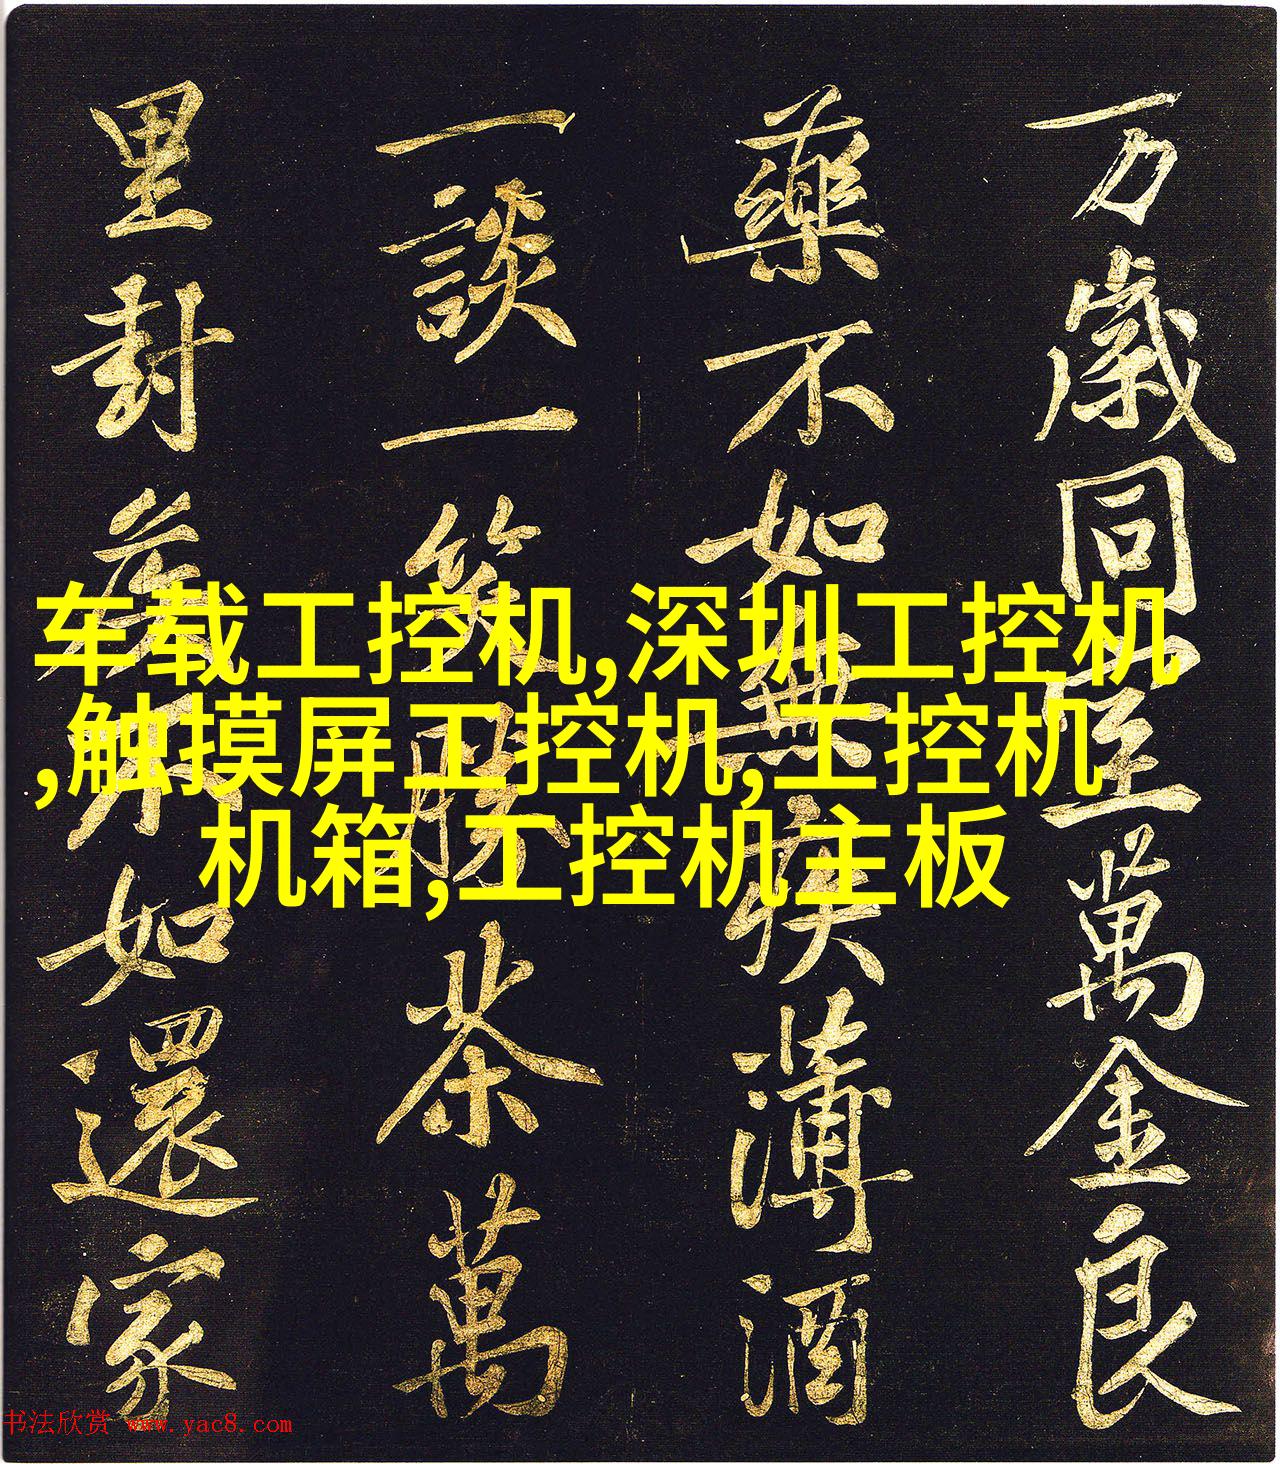 万歲同室萬金良
藥不如無疾薄酒
一談一笑勝茶萬
里封侯不如還家
车载工控机,深圳工控机
,触摸屏工控机,工控机
机箱,工控机主板
书法欣赏 www.yac8.com